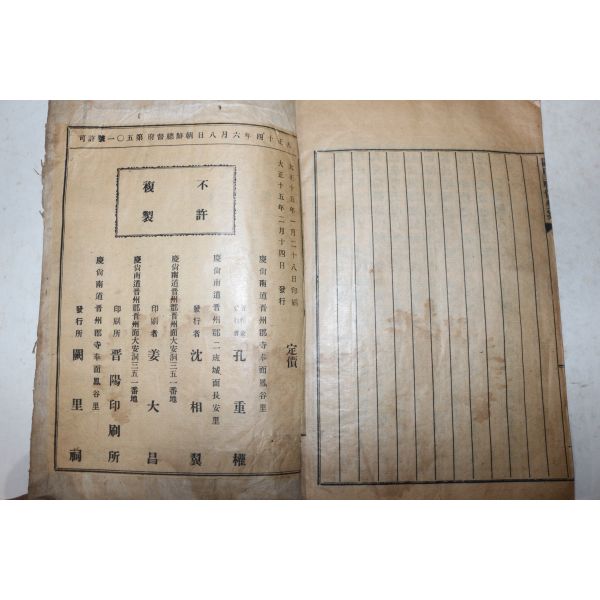 正十四年六月八日朝鮮總督府第五〇一號許可
不許
複製
大正十五年一月二十八日印刷
大正十五年二月十四日 發行
定價
慶尙南道晋州郡寺奉面鳳谷里
孔重權
慶尙南道晋州郡二班城面長安里
發行者 沈相翼
慶尙南道晋州郡晋州面大安洞三五一番地
印刷者 姜大昌
慶尙南道晋州郡晋州面大安洞三五一番地
印刷所 晋陽印刷所
慶尙南道晋州郡寺奉面鳳谷里
發行所 闕里祠